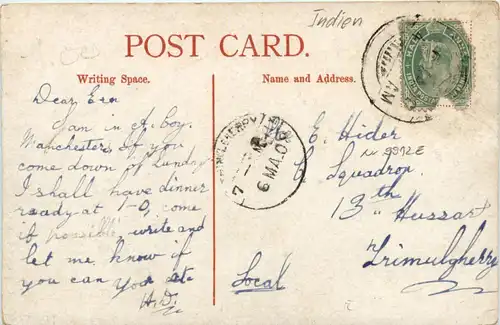 Indien
POST CARD.
Writing Space.
Name and Address.
Dear Ern
I am in A. Coy.
Manchesters if you
come down of Sunday
I shall have dinner
ready at 1-0, come
if possible, write and
let me know if
you can
H.D.
E. Hider
C Squadron
13th Hussars
Trimulgherry
Local
6 MA 0